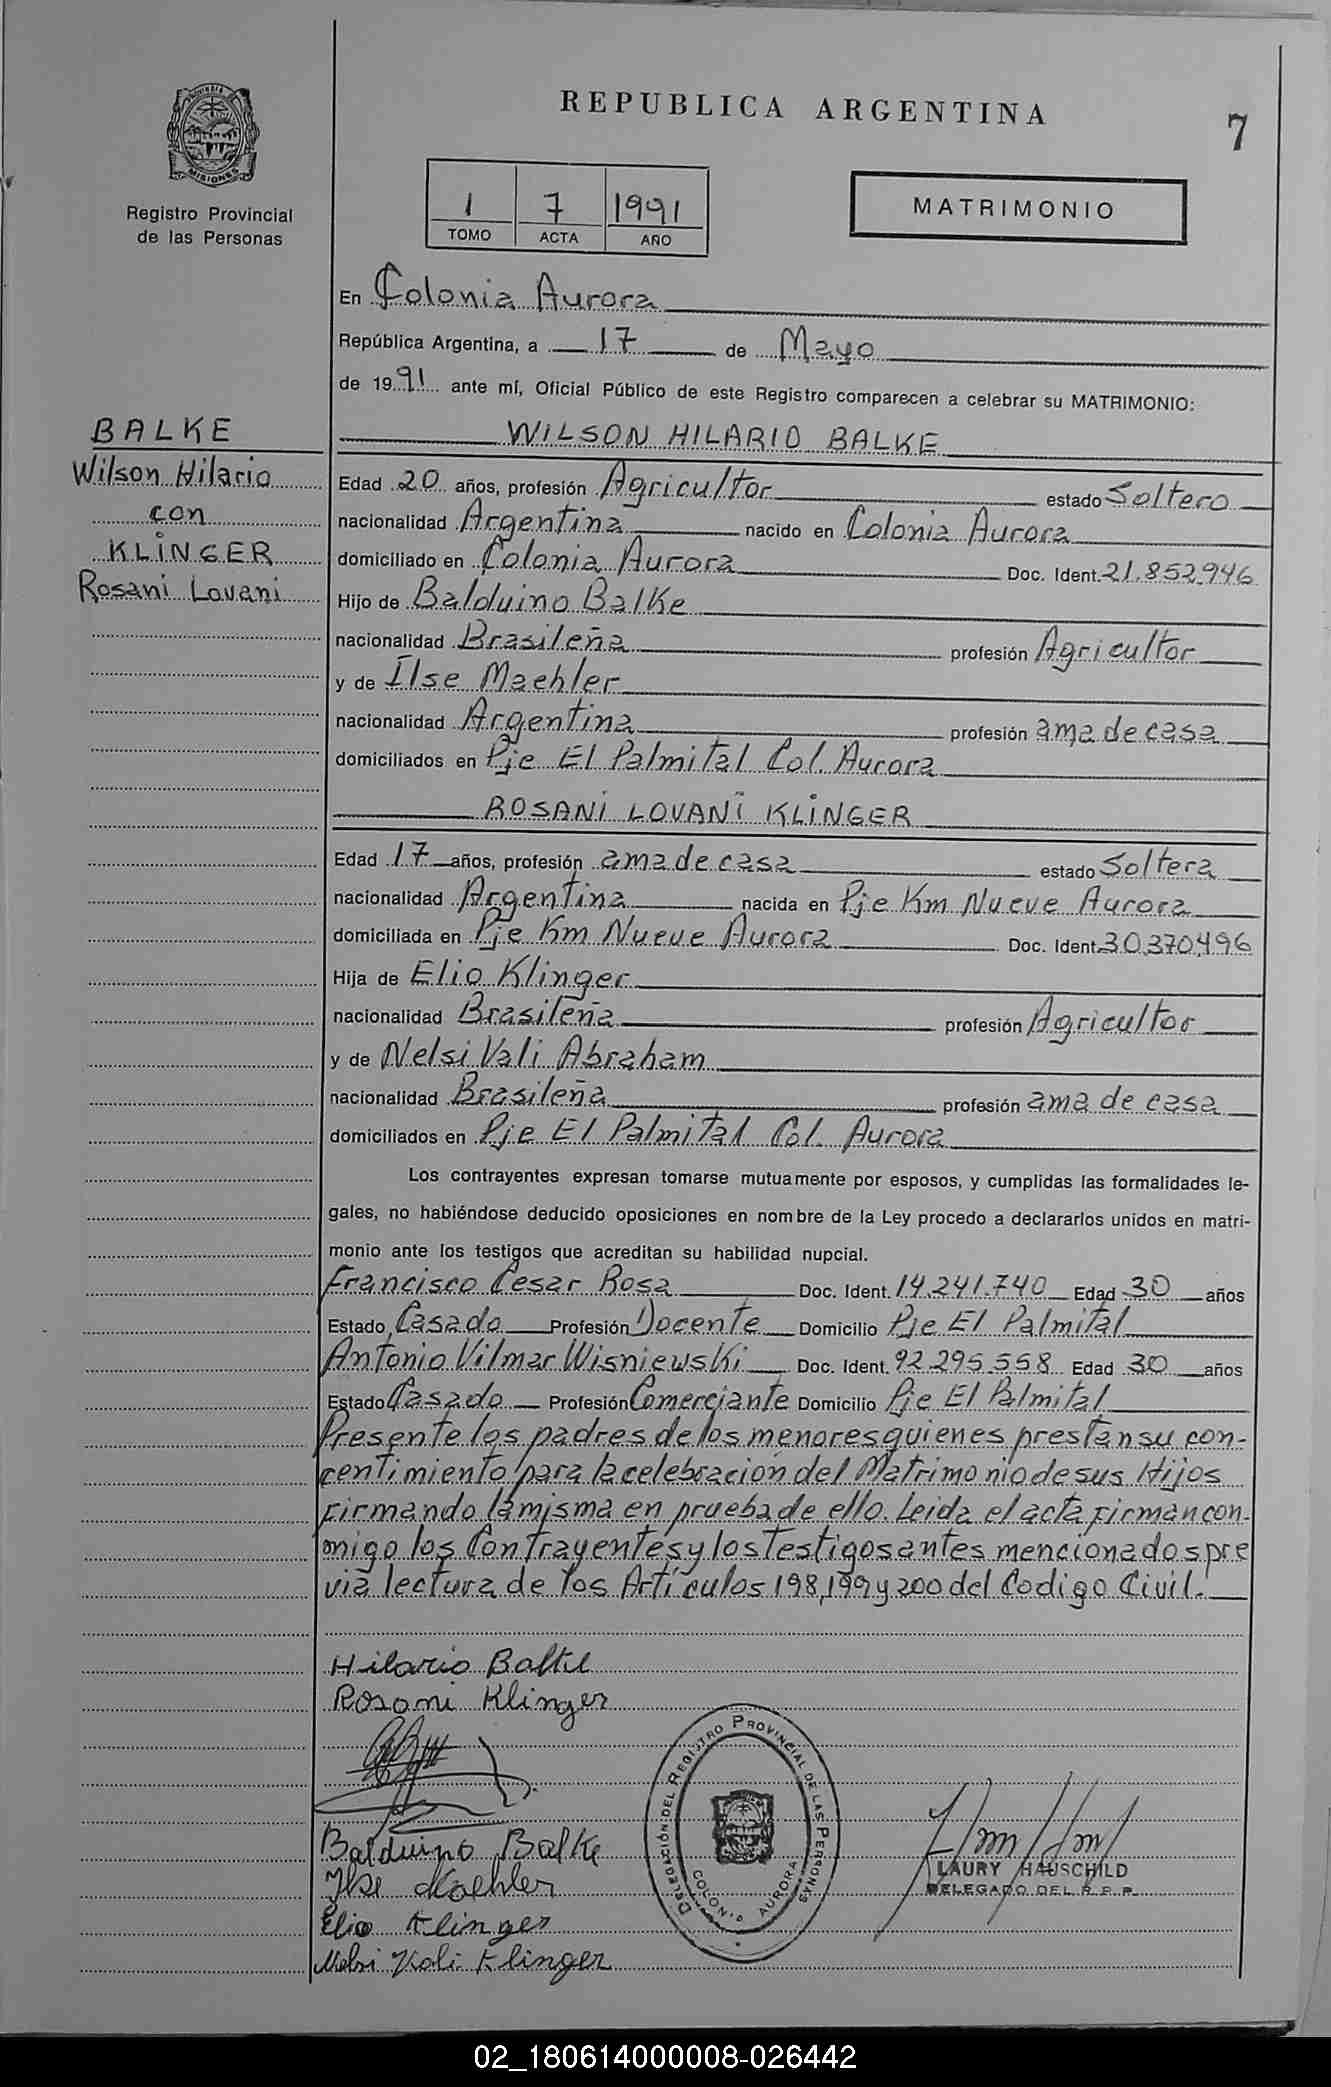 REPUBLICA ARGENTINA
7
MISIONES
Registro Provincial
de las Personas
1 7 1991
TOMO ACTA AÑO
MATRIMONIO
En Colonia Aurora
República Argentina, a 17 de Mayo
de 1991 ante mí, Oficial Público de este Registro comparecen a celebrar su MATRIMONIO:
BALKE
Wilson Hilario
con
KLINGER
Rosani Lovani
WILSON HILARIO BALKE
Edad 20 años, profesión Agricultor estado Soltero
nacionalidad Argentina nacido en Colonia Aurora
domiciliado en Colonia Aurora Doc. Ident. 21.852.946
Hijo de Balduino Balke
nacionalidad Brasileña profesión Agricultor
y de Ilse Maehler
nacionalidad Argentina profesión ama de casa
domiciliados en Pje El Palmital Col. Aurora
ROSANI LOVANI KLINGER
Edad 17 años, profesión ama de casa estado Soltera
nacionalidad Argentina nacida en Pje Km Nueve Aurora
domiciliada en Pje Km Nueve Aurora Doc. Ident. 30.370.496
Hija de Elio Klinger
nacionalidad Brasileña profesión Agricultor
y de Nelsi Vali Abraham
nacionalidad Brasileña profesión ama de casa
domiciliados en Pje El Palmital Col. Aurora
Los contrayentes expresan tomarse mutuamente por esposos, y cumplidas las formalidades le-
gales, no habiéndose deducido oposiciones en nombre de la Ley procedo a declararlos unidos en matri-
monio ante los testigos que acreditan su habilidad nupcial.
Francisco Cesar Rosa Doc. Ident. 14.241.740 Edad 30 años
Estado Casado Profesión Docente Domicilio Pje El Palmital
Antonio Vilmar Wisniewski Doc. Ident. 92.295.558 Edad 30 años
Estado Casado Profesión Comerciante Domicilio Pje El Palmital
Presente los padres de los menores quienes prestan su con-
centimiento para la celebración del Matrimonio de sus Hijos
firmando la misma en prueba de ello. Leida el acta firman con-
migo los Contrayentes y los Testigos antes mencionados pre
via lectura de los Artículos 198, 199 y 200 del Codigo Civil.
Hilario Balke
Rosani Klinger
Balduino Balke
Ilse Maehler
Elio Klinger
Nelsi Vali Klinger
DELEGACIÓN DEL REGISTRO PROVINCIAL DE LAS PERSONAS
COLONIA AURORA
LAURY HAUSCHILD
DELEGADO DEL R.P.P.
02_180614000008-026442